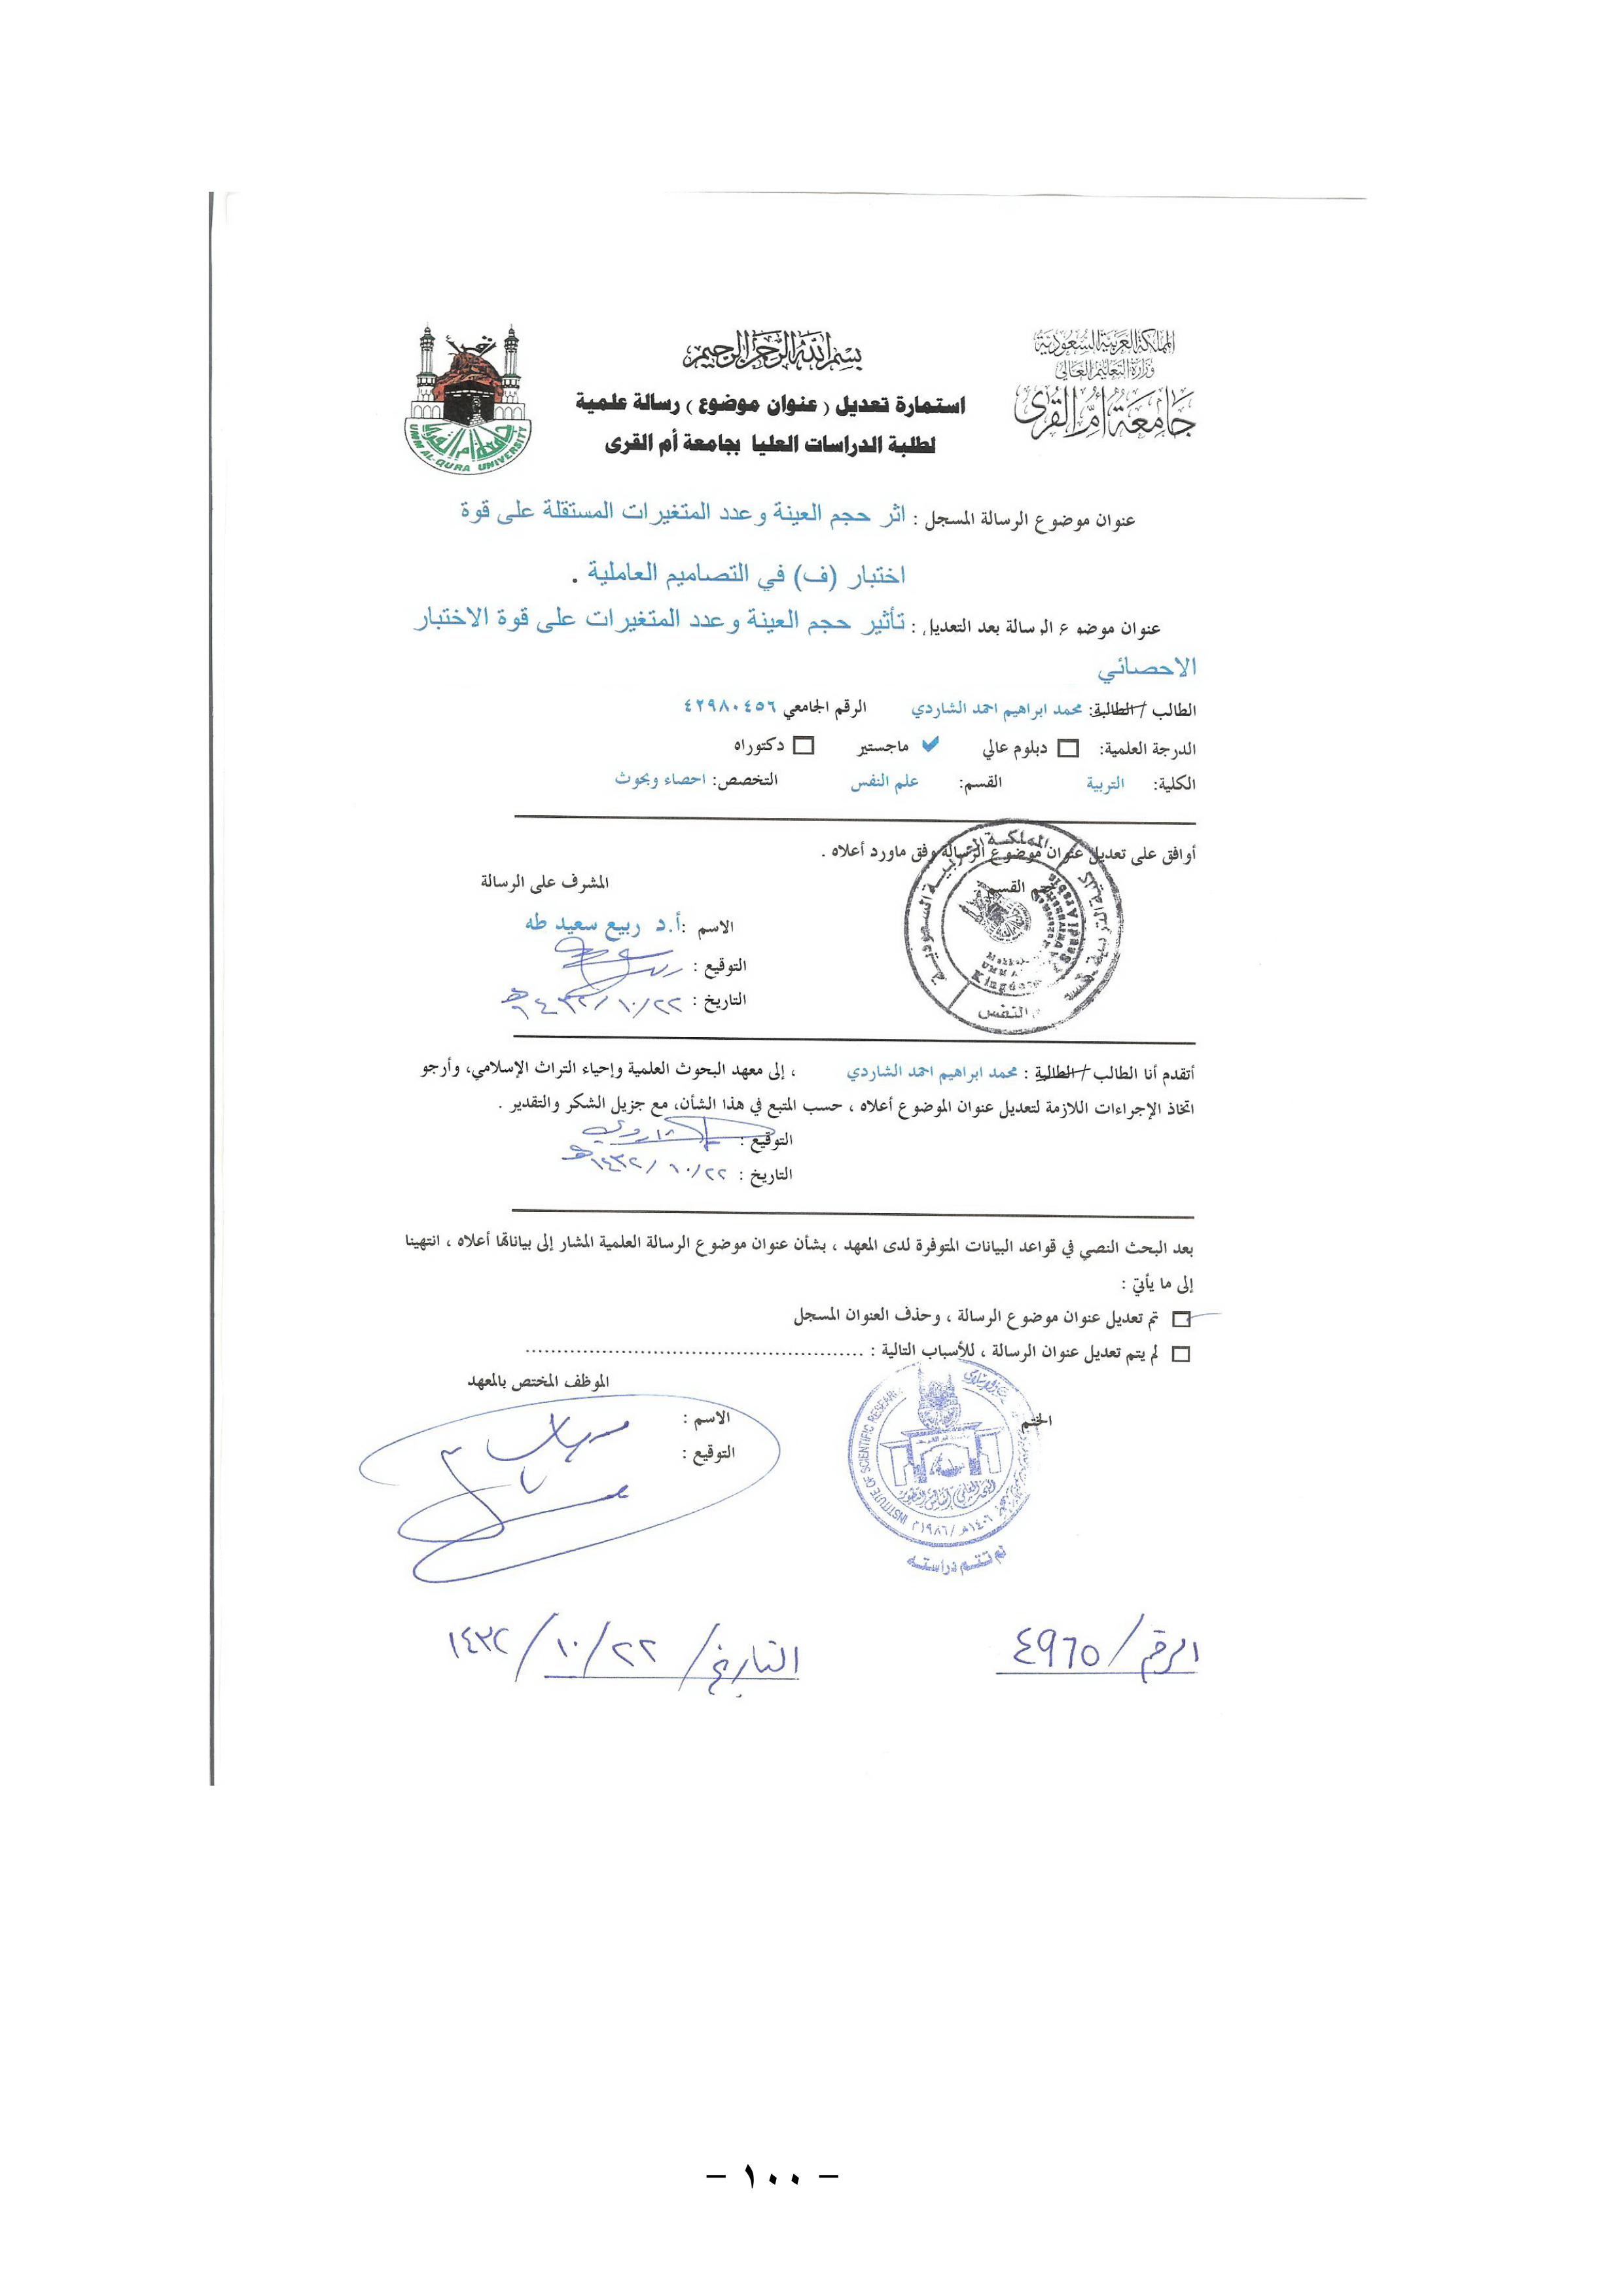 المملكة العربية السعودية
وزارة التعليم العالي
جامعة أم القرى
بسم الله الرحمن الرحيم
استمارة تعديل ( عنوان موضوع ) رسالة علمية
لطلبة الدراسات العليا بجامعة أم القرى
UMM AL-QURA UNIVERSITY
عنوان موضوع الرسالة المسجل : اثر حجم العينة وعدد المتغيرات المستقلة على قوة
اختبار (ف) في التصاميم العاملية .
عنوان موضوع الرسالة بعد التعديل : تأثير حجم العينة وعدد المتغيرات على قوة الاختبار
الاحصائي
الطالب / الطالبة: محمد ابراهيم احمد الشاردي الرقم الجامعي ٤٢٩٨٠٤٥٦
الدرجة العلمية: دبلوم عالي ماجستير دكتوراه
الكلية: التربية القسم: علم النفس التخصص: احصاء وبحوث
أوافق على تعديل عنوان موضوع الرسالة وفق ماورد أعلاه .
ختم القسم المشرف على الرسالة
الاسم :أ.د ربيع سعيد طه
التوقيع :
التاريخ : ٢٢/١٠/١٤٣٢هـ
أتقدم أنا الطالب / الطالبة : محمد ابراهيم احمد الشاردي ، إلى معهد البحوث العلمية وإحياء التراث الإسلامي، وأرجو
اتخاذ الإجراءات اللازمة لتعديل عنوان الموضوع أعلاه ، حسب المتبع في هذا الشأن، مع جزيل الشكر والتقدير .
التوقيع :
التاريخ : ٢٢/١٠/١٤٣٢هـ
بعد البحث النصي في قواعد البيانات المتوفرة لدى المعهد ، بشأن عنوان موضوع الرسالة العلمية المشار إلى بياناتها أعلاه ، انتهينا
إلى ما يأتي :
تم تعديل عنوان موضوع الرسالة ، وحذف العنوان المسجل
لم يتم تعديل عنوان الرسالة ، للأسباب التالية : ......................................................
الموظف المختص بالمعهد
الختم الاسم :
التوقيع :
INSTITUTE OF SCIENTIFIC RESEARCH
١٤٠٦هـ/١٩٨٦م
لم تتم دراسته
الرقم/ ٤٩٦٥ التاريخ/ ٢٢/١٠/١٤٣٢
- ١٠٠ -